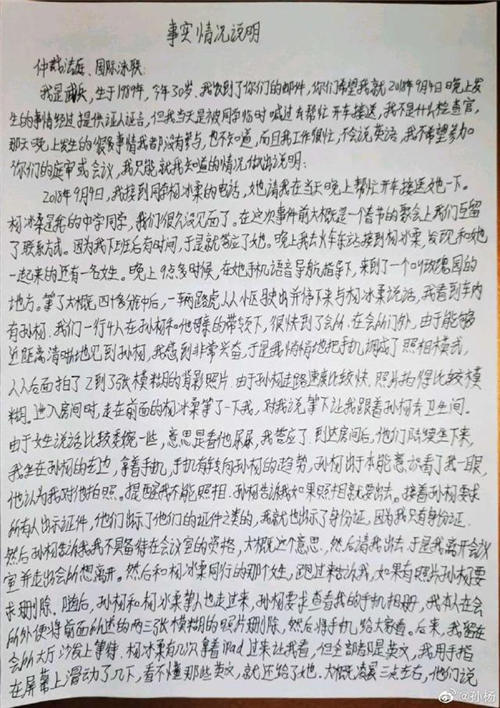 事实情况说明
仲裁法庭、国际泳联:
我是 ，生于1989年，今年30岁，我收到了你们的邮件，你们希望我就2018年9月4日晚上发
生的事情经过提供证人证言，但我当天是被同学临时喊过去帮忙开车接送，我不是什么检查官，
那天晚上发生的很多事情我都没有参与，也不知道，而且我工作很忙，不会说英语，我不希望参加
你们的庭审或会议，我只能就我知道的情况做出说明：
2018年9月4日，我接到同学 的电话，她请我在当天晚上帮忙开车接送她一下。
是我的中学同学，我们很久没见面了。在这次事件前大概是一个春节的聚会上我们互留
了联系方式。因为我下班后有时间，于是就答应了她。晚上我去火车东站接到 ，发现和她
一起来的还有一名女性。晚上9点多时候，在她手机语音导航指导下，来到了一个叫玫瑰园的
地方。等了大概四十多分钟后，一辆路虎从小区驶出并停下来与 说话，我看到车内
有孙杨。我们一行4人在孙杨和他 的带领下，很快到了会所。在会所门外，由于能够
近距离清晰地见到孙杨，我感到非常兴奋，于是我悄悄地把手机调成了照相模式，
从后面拍了2到3张模糊的背影照片。由于孙杨走路速度比较快，照片拍得比较模
糊。进入房间时，走在前面的 等了一下我，对我说等下让我跟着孙杨去卫生间。
由于女生说话比较委婉一些，意思是看他尿尿，我答应了。到达房间后，他们陆续坐下来，
我坐在孙杨的左边，拿着手机，手机有转向孙杨的趋势，孙杨出于本能意识看了我一眼，
他认为我对他拍照。提醒我不能照相。孙杨告诉我如果照相就要出去。接着孙杨要求
所有人出示证件，他们出示了他们的证件之类的，我就也出示了身份证，因为我只有身份证。
然后孙杨告诉我我不具备待在会议室的资格，大概这个意思，然后请我出去，于是我离开会议
室并走出会所想离开。然后和 同行的那个女性，跑过来告诉我，如果有照片孙杨要
求删除。随后，孙杨和 等人也走过来，孙杨要求查看我的手机相册，我本人在会
所外便将前面所述的两三张模糊的照片删除，然后将手机给大家看。后来，我留在
会所大厅沙发上等待。 有几次拿着iPad过来让我看，但全部都是英文，我用手指
在屏幕上滑动了几下，看不懂那些英文，就还给了她。大概凌晨三点左右，他们说
@孙杨